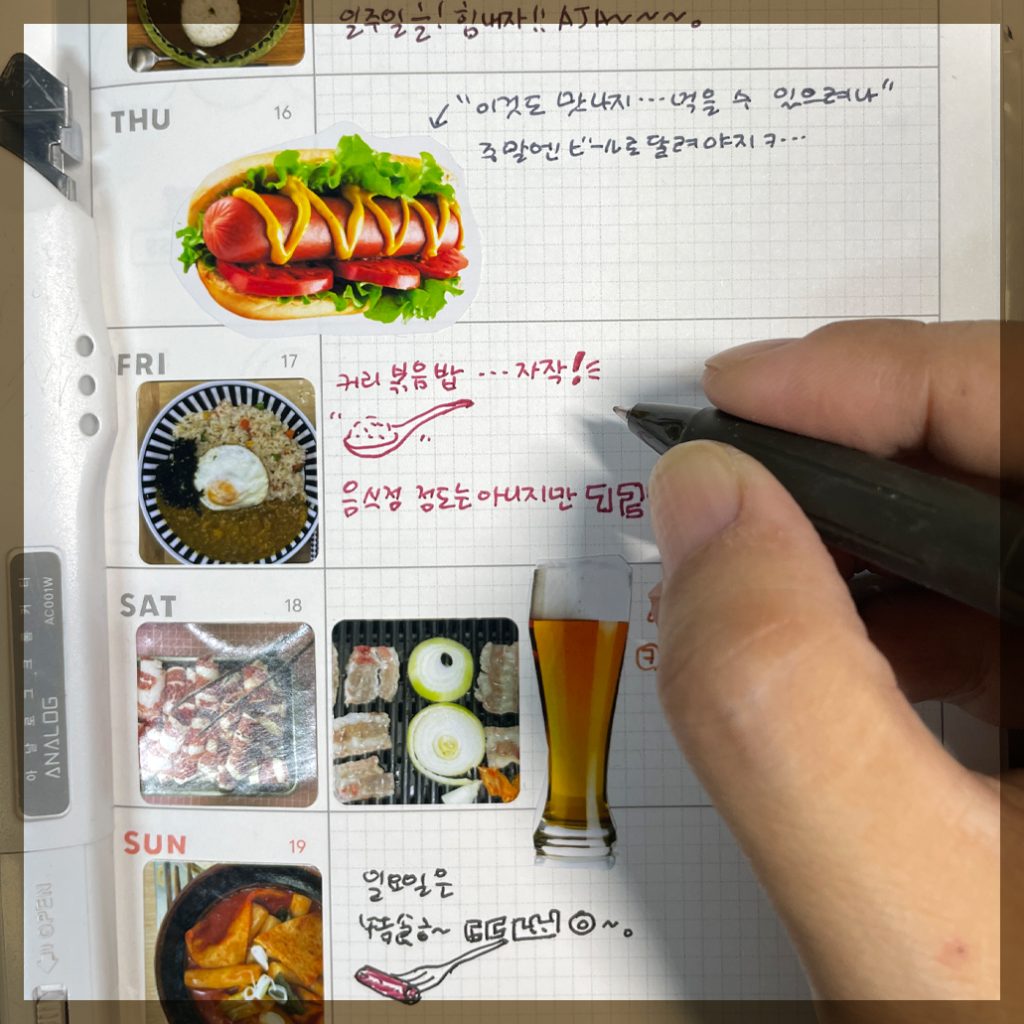 일주일을! 힘내자!! AJA~~~~。
THU 16
"이것도 맛나지...먹을 수 있으려나"
주말엔 ビール로 달려야지 ㅋ...
FRI 17
커리 볶음밥 ...자작!
음식점 정도는 아니지만
SAT 18
ㅋ
SUN 19
일요일은
매콤
아날로그크루커디 AC001W
ANALOG
OPEN